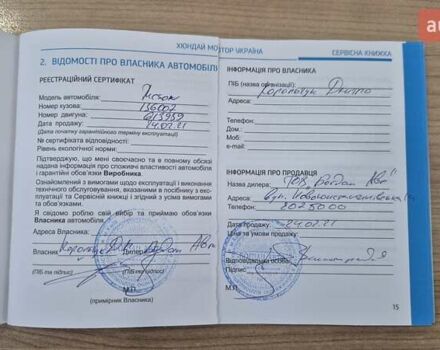 ХЮНДАЙ МОТОР УКРАЇНА
2. ВІДОМОСТІ ПРО ВЛАСНИКА АВТОМОБІЛЯ
РЕЄСТРАЦІЙНИЙ СЕРТИФІКАТ
Модель автомобіля:
Номер кузова: 136007
Номер двигуна: 613959
Дата продажу: 24.02.21
(Дата початку гарантійного терміну експлуатації)
№ сертифіката відповідності:
Рівень екологічної норми:
Підтверджую, що мені своєчасно та в повному обсязі
надана інформація про споживчі властивості автомобіля
і гарантійні обов'язки Виробника.
Ознайомлений з вимогами щодо експлуатації і виконання
технічного обслуговування, вказаними в посібнику з екс-
плуатації та Сервісній книжці і згідний з усіма вимогами
та обов'язками.
Я свідомо роблю свій вибір та приймаю обов'язки
Власника автомобіля.
Адреса Власника:
Власник Дилер
(ПІБ та підпис) (ПІБ та підпис)
М.П.
(примірник Власника)
СЕРВІСНА КНИЖКА
ІНФОРМАЦІЯ ПРО ВЛАСНИКА
ПІБ (назва організації): Дмитро
Адреса:
Телефон:
Дом.:
Моб.:
e-mail:
ІНФОРМАЦІЯ ПРО ПРОДАВЦЯ
Назва дилера: ТОВ "Богдан Авт"
Адреса: вул.
Телефон: 3025000
Дата продажу: 24.02.21
Ціна та умови продажу:
Відповідальна особа:
Підпис
М.П.
15